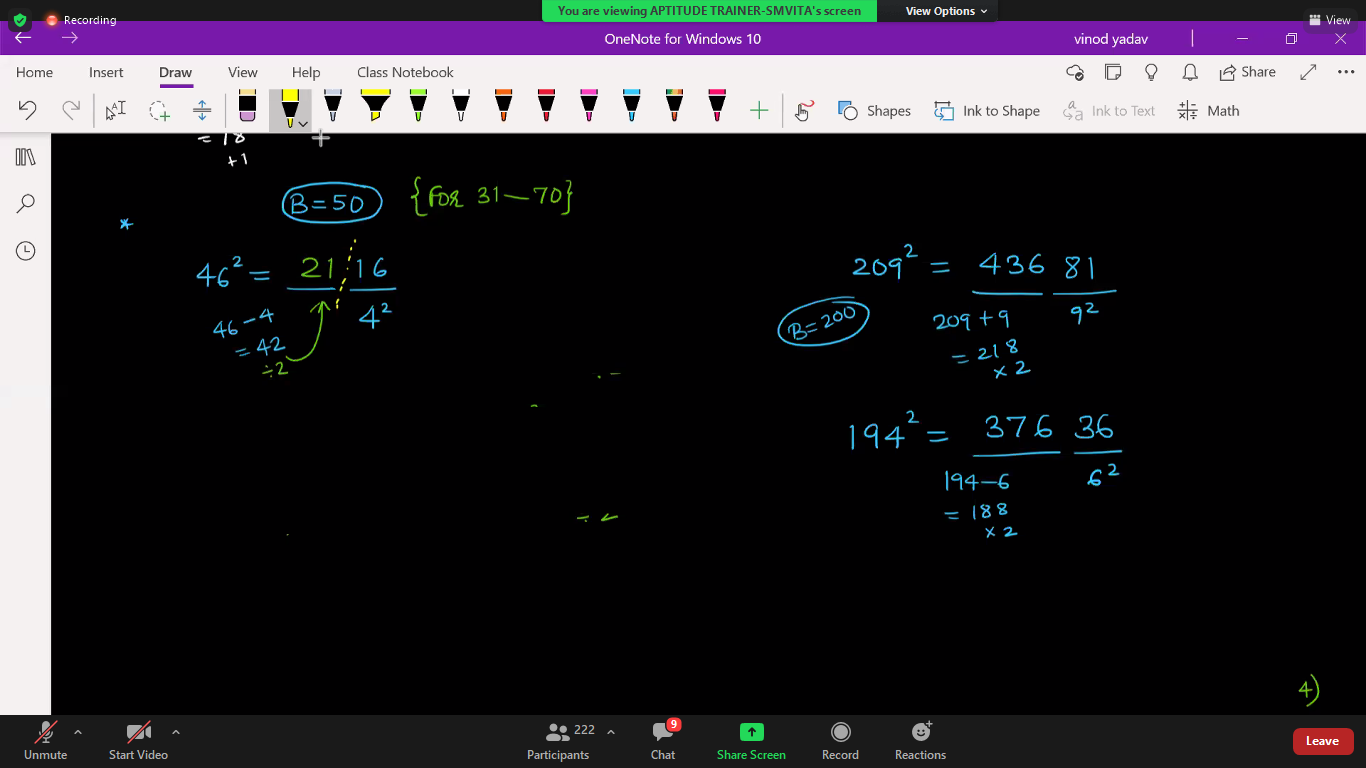 Recording
You are viewing APTITUDE TRAINER-SMVITA's screen
View Options
View
OneNote for Windows 10
vinod yadav
Home Insert Draw View Help Class Notebook
Share
Shapes
Ink to Shape
Ink to Text
Math
= 18
+1
B=50 {FOR 31—70}
*
46² = 21 16
46-4
4²
= 42
÷2
209² = 436 81
B=200
209+9
9²
= 218
× 2
194² = 376 36
194-6
6²
= 188
× 2
4)
Unmute
Start Video
222
Participants
9
Chat
Share Screen
Record
Reactions
Leave